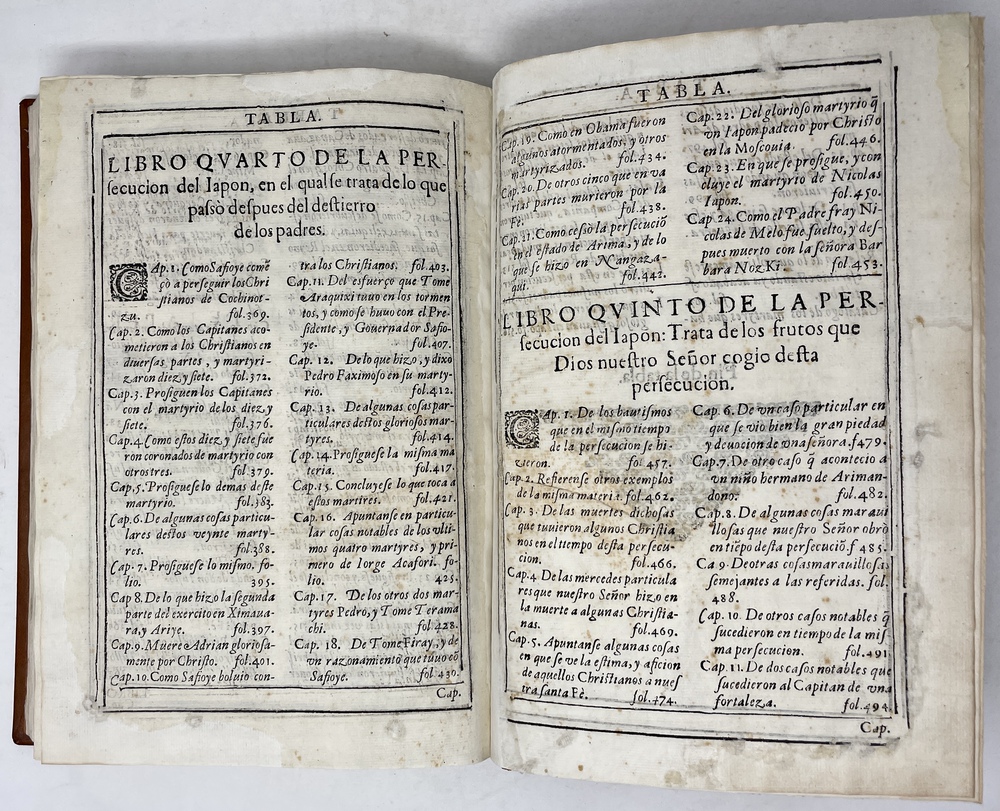 TABLA.
LIBRO QVARTO DE LA PER-
secucion del Iapon, en el qual se trata de lo que
passò despues del destierro
de los padres.
CAp. 1. Como Safioye comẽ
çò a perseguir los Chri
stianos de Cochinot-
zu. fol.369.
Cap. 2. Como los Capitanes aco-
metieron a los Christianos en
diuersas partes, y martyri-
zaron diez y siete. fol.372.
Cap.3. Prosiguen los Capitanes
con el martyrio de los diez y
siete. fol.376.
Cap.4. Como estos diez y siete fue
ron coronados de martyrio con
otros tres. fol.379.
Cap.5. Prosiguese lo demas deste
martyrio. fol.383.
Cap.6. De algunas cosas particu-
lares destos veynte marty-
res. fol.388.
Cap. 7. Prosiguese lo mismo. fo-
lio. 395.
Cap 8. De lo que hizo la segunda
parte del exercito en Ximaua-
ra, y Ariye. fol.397.
Cap.9. Muere Adrian gloriosa-
mente por Christo. fol.401.
Cap.10. Como Safioye boluio con-
tra los Christianos. fol.403.
Cap.11. Del esfuerço que Tome
Araquixi tuuo en los tormen
tos, y como se huuo con el Pre-
sidente, y Gouernador Safio-
ye. fol.407.
Cap. 12. De lo que hizo, y dixo
Pedro Faximoso en su marty-
rio. fol.412.
Cap. 13. De algunas cosas par-
ticulares destos gloriosos mar-
tyres. fol.414.
Cap.14. Prosiguese la misma ma
teria. fol.417.
Cap.15. Concluyese lo que toca a
estos martires. fol.421.
Cap.16. Apuntanse en particu-
lar cosas notables de los vlti-
mos quatro martyres, y pri-
mero de Iorge Acafori. fo-
lio. 425.
Cap.17. De los otros dos mar-
tyres Pedro, y Tome Terama
chi. fol.428.
Cap. 18. De Tome Firay, y de
vn razonamiento que tuuo cõ
Safioye. fol.430.
Cap.
TABLA.
Cap.19. Como en Obama fueron
algunos atormentados, y otros
martyrizados. fol.434.
Cap.20. De otros cinco que en va
rias partes murieron por la
Fè. fol.438.
Cap.21. Como cessò la persecuciõ
en el estado de Arima, y de lo
que se hizo en Nangaza-
qui. fol.442.
Cap.22. Del glorioso martyrio q̃
vn Iapon padecio por Christo
en la Moscouia. fol.446.
Cap.23. En que se prosigue, y con
cluye el martyrio de Nicolas
Iapon. fol.450.
Cap.24. Como el Padre fray Ni-
colas de Melo fue suelto, y des-
pues muerto con la señora Bar
bara NozKi. fol 453.
LIBRO QVINTO DE LA PER-
secucion del Iapon: Trata de los frutos que
Dios nuestro Señor cogio desta
persecucion.
CAp. 1. De los bautismos
que en el mismo tiempo
de la persecucion se hi-
zieron. fol 457.
Cap.2. Refierense otros exemplos
de la misma materia. fol.462.
Cap.3. De las muertes dichosas
que tuuieron algunos Christia
nos en el tiempo desta persecu-
cion. fol.466.
Cap.4 De las mercedes particula
res que nuestro Señor hizo en
la muerte a algunas Christia-
nas. fol.469.
Cap.5. Apuntanse algunas cosas
en que se ve la estima, y aficion
de aquellos Christianos a nues
tra santa Fè. fol.474.
Cap.6. De vn caso particular en
que se vio bien la gran piedad
y deuocion de vna señora. f479.
Cap.7. De otro caso q̃ acontecio a
vn niño hermano de Ariman-
dono. fol.482.
Cap.8. De algunas cosas maraui
llosas que nuestro Señor obrò
en tiẽpo desta persecuciõ. f 485.
Ca 9. De otras cosas marauillosas
semejantes a las referidas. fol.
488.
Cap.10. De otros casos notables q̃
sucedieron en tiempo de la mis
ma persecucion. fol.491
Cap.11. De dos casos notables que
sucedieron al Capitan de vna
fortaleza. fol.494.
Cap.